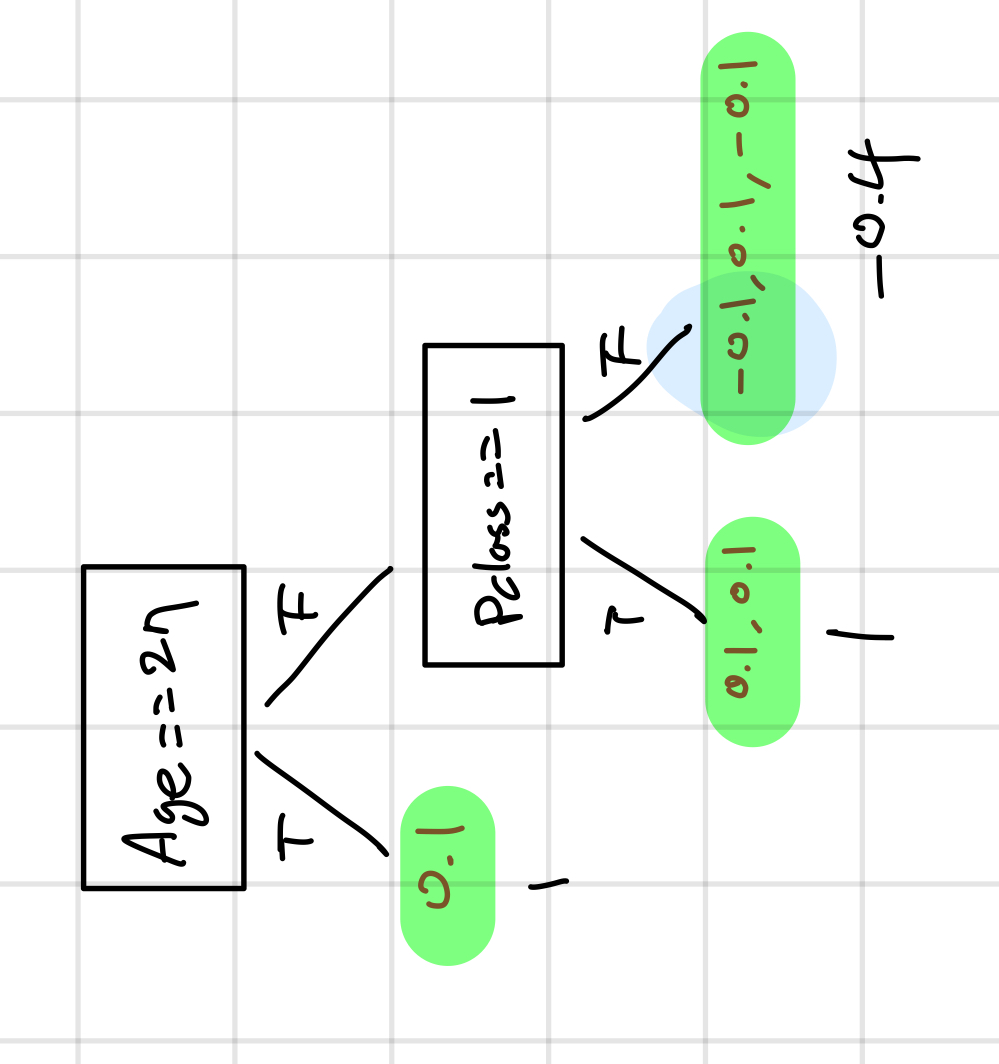 Age==27
T F
0.1
Pclass==1
1
T F
0.1, 0.1 -0.1, 0.1, -0.1
1 -0.4